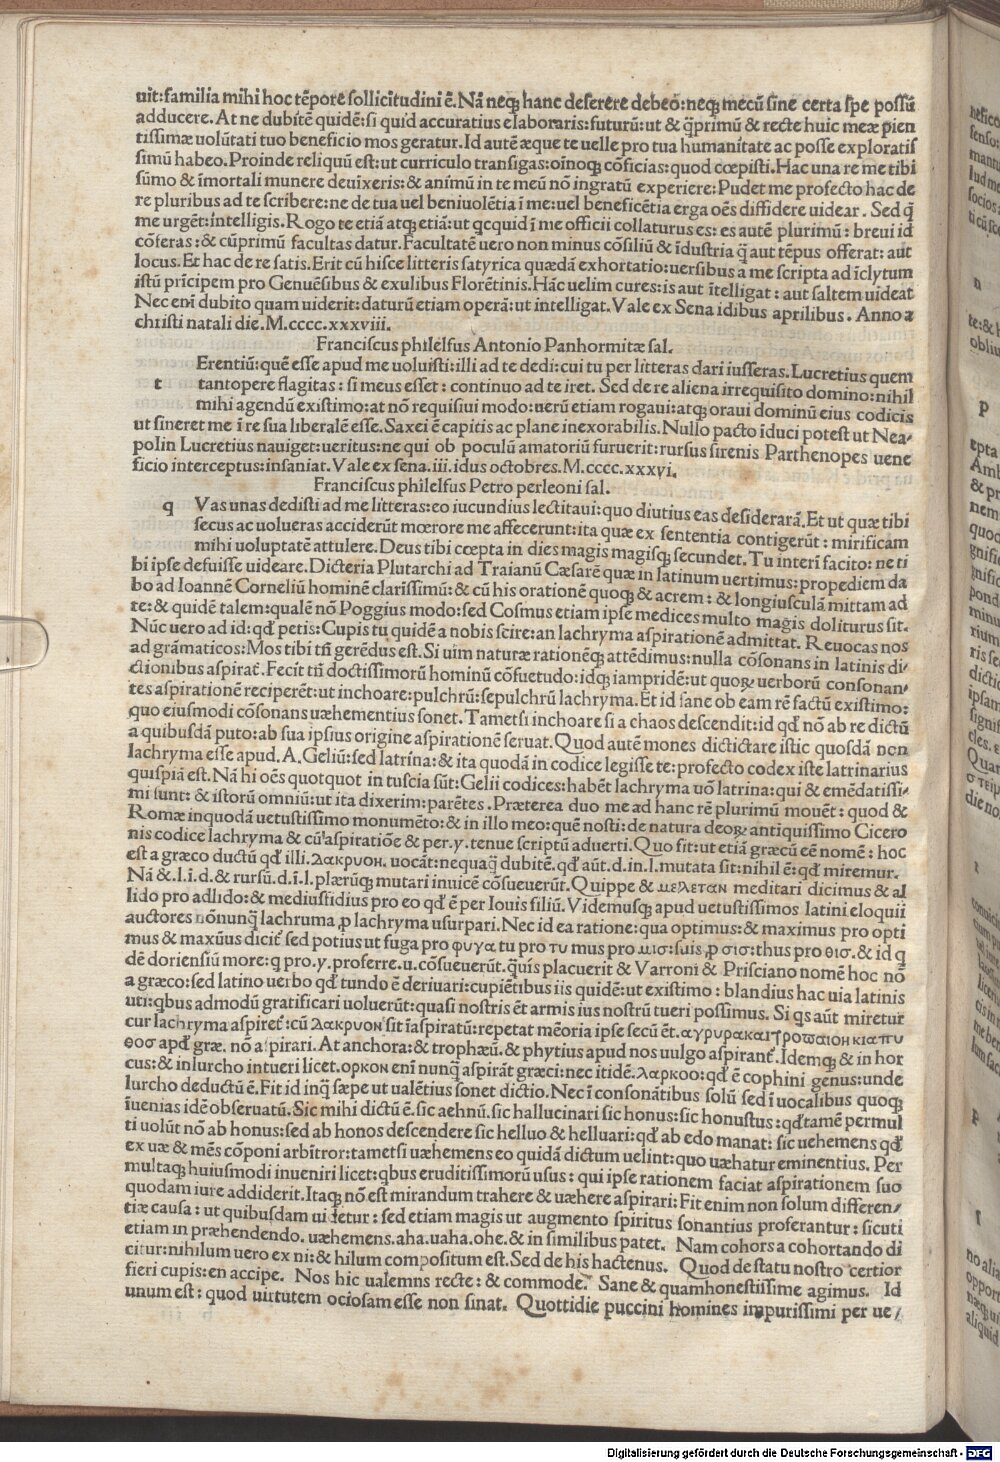 uit:familia mihi hoc tēpore sollicitudini ē. Nā neqȝ hanc deserere debeo:neqȝ mecū sine certa spe possū
adducere. At ne dubitē quidē:si quid accuratius elaboraris:futurū:ut & q̄primū & recte huic meæ pien
tissimæ uolūtati tuo beneficio mos geratur. Id autē æque te uelle pro tua humanitate ac posse exploratis
simū habeo. Proinde reliquū est:ut curriculo transigas:oīnoqȝ cōficias:quod cœpisti. Hac una re me tibi
sūmo & īmortali munere deuixeris:& animū in te meū nō ingratū experiere:Pudet me profecto hac de
re pluribus ad te scribere:ne de tua uel beniuolētia ī me:uel beneficētia erga oēs diffidere uidear. Sed q̄
me urgēt:intelligis. Rogo te etiā atqȝ etiā:ut qcquid ī me officii collaturus es: es autē plurimū: breui id
cōferas:& cūprimū facultas datur. Facultatē uero non minus cōsiliū & īdustria q̄ aut tēpus offerat: aut
locus. Et hac de re satis. Erit cū hisce litteris satyrica quædā exhortatio:uersibus a me scripta ad īclytum
istū prīcipem pro Genuēsibus & exulibus Florētinis. Hāc uelim cures:is aut ītelligat: aut saltem uideat
Nec enī dubito quam uiderit:daturū etiam operā:ut intelligat. Vale ex Sena idibus aprilibus. Anno a
christi natali die. M.cccc.xxxviii.
Franciscus philelfus Antonio Panhormitæ sal.
t Erentiū:quē esse apud me uoluisti:illi ad te dedi:cui tu per litteras dari iusseras. Lucretius quem
tantopere flagitas: si meus esset: continuo ad te iret. Sed de re aliena irrequisito domino:nihil
mihi agendū existimo:at nō requisiui modo:uerū etiam rogaui:atqȝ oraui dominū eius codicis
ut sineret me ī re sua liberalē esse. Saxei ē capitis ac plane inexorabilis. Nullo pacto īduci potest ut Nea-
polin Lucretius nauiget:ueritus:ne qui ob poculū amatoriū furuerit:rursus sirenis Parthenopes uene
ficio interceptus:insaniat. Vale ex sena .iii.idus octobres. M.cccc.xxxvi.
Franciscus philelfus Petro perleoni sal.
q Vas unas dedisti ad me litteras:eo iucundius lectitaui:quo diutius eas desiderarā. Et ut quæ tibi
secus ac uolueras acciderūt mœrore me affecerunt:ita quæ ex sententia contigerūt: mirificam
mihi uoluptatē attulere. Deus tibi cœpta in dies magis magisqȝ secundet. Tu interī facito: ne ti
bi ipse defuisse uideare. Dicteria Plutarchi ad Traianū Cæsarē quæ in latinum uertimus:propediem da
bo ad Ioannē Corneliū hominē clarissimū: & cū his orationē quoqȝ & acrem: & longiusculā mittam ad
te:& quidē talem:qualē nō Poggius modo:sed Cosmus etiam ipse medices multo magis doliturus sit.
Nūc uero ad id:qđ petis:Cupis tu quidē a nobis scire:an lachryma aspirationē admittat. Reuocas nos
ad grāmaticos:Mos tibi tn̄ gerēdus est. Si uim naturæ rationēqȝ attēdimus:nulla cōsonans in latinis di-
ctionibus aspirat̄. Fecit tn̄ doctissimorū hominū cōsuetudo:idqȝ iampridē:ut quorꝝ uerborū consonan-
tes aspirationē reciperēt:ut inchoare:pulchrū:sepulchrū lachryma. Et id sane ob eam rē factū existimo:
quo eiusmodi cōsonans uæhementius sonet. Tametsi inchoare si a chaos descendit:id qđ nō ab re dictū
a quibusdā puto:ab sua ipsius origine aspirationē seruat. Quod autē mones dictictare istic quosdā non
lachryma esse apud. A. Geliū:sed latrina:& ita quodā in codice legisse te:profecto codex iste latrinarius
quispiā est. Nā hi oēs quotquot in tuscia sūt:Gelii codices:habēt lachryma uō latrina:qui & emēdatissi-
mi sunt:& istorū omniū:ut ita dixerim:parētes. Præterea duo me ad hanc rē plurimū mouēt: quod &
Romæ inquodā uetustissimo monumēto:& in illo meo:quē nosti:de natura deoꝝ antiquissimo Cicero
nis codice lachryma & cū aspiratiōe & per.y.tenue scriptū aduerti. Quo fit:ut etiā græcū eē nomē: hoc
est a græco ductū qđ illi. λακρυον. uocāt:nequaq̄ dubitē.qđ aūt.d.in.l.mutata sit:nihil ē:qđ miremur.
Nā &.l.i.d.& rursū.d.ī.l.plærūqȝ mutari inuicē cōsueuerūt. Quippe & μελεταν meditari dicimus & al
lido pro adlido:& mediustidius pro eo qđ ē per Iouis filiū. Videmusqȝ apud uetustissimos latini eloquii
auctores nōnunq̄ lachruma ꝓ lachryma usurpari. Nec id ea ratione:qua optimus:& maximus pro opti
mus & maxūus dicit̄ sed potius ut fuga pro φυγα tu pro τυ mus pro μισ:suis ꝓ σισ:thus pro θισ.& id q
dē doriensiū more:q pro.y.proferre.u.cōsueuerūt.q̄uis placuerit & Varroni & Prisciano nomē hoc nō
a græco:sed latino uerbo qđ tundo ē deriuari:cupiētibus iis quidē:ut existimo: blandius hac uia latinis
uti:qbus admodū gratificari uoluerūt:quasi nostris ēt armis ius nostrū tueri possimus. Si qs aūt miretur
cur lachryma aspiret̄:cū λακρυον sit īaspiratū:repetat mēoria ipse secū ēt. αγυρακαιτροπαιονκιαπυ
θοσ apđ græ. nō aspirari. At anchora:& trophæū.& phytius apud nos uulgo aspirant̄. Idemqȝ & in hor
cus:& inlurcho intueri licet. ορκον enī nunq̄ aspirāt græci:nec itidē. λαρκοσ:qđ ē cophini genus:unde
lurcho deductū ē. Fit id inq̄ sæpe ut ualētius sonet dictio. Nec ī consonātibus solū sed ī uocalibus quoqȝ
īuenias idē obseruatū. Sic mihi dictū ē. sic aehnū. sic hallucinari sic honus: sic honustus: qđtamē permul
ti uolūt nō ab honus:sed ab honos descendere sic helluo & helluari:qđ ab edo manat: sic uehemens qđ
ex uæ & mēs cōponi arbitror:tametsi uæhemens eo quidā dictum uelint:quo uæhatur eminentius. Per
multaqȝ huiusmodi inueniri licet:qbus eruditissimorū usus: qui ipse rationem faciat aspirationem suo
quodam iure addiderit. Itaqȝ nō est mirandum trahere & uæhere aspirari:Fit enim non solum differen-
tiæ causa: ut quibusdam uidetur: sed etiam magis ut augmento spiritus sonantius proferantur: sicuti
etiam in præhendendo. uæhemens.aha.uaha.ohe.& in similibus patet. Nam cohors a cohortando di
citur:nihilum uero ex ni:& hilum compositum est. Sed de his hactenus. Quod de statu nostro certior
fieri cupis:en accipe. Nos hic ualemns recte: & commode. Sane & quamhonestissime agimus. Id
unum est: quod uirtutem ociosam esse non sinat. Quottidie puccini homines impurissimi per ue-
Digitalisierung gefördert durch die Deutsche Forschungsgemeinschaft - DFG